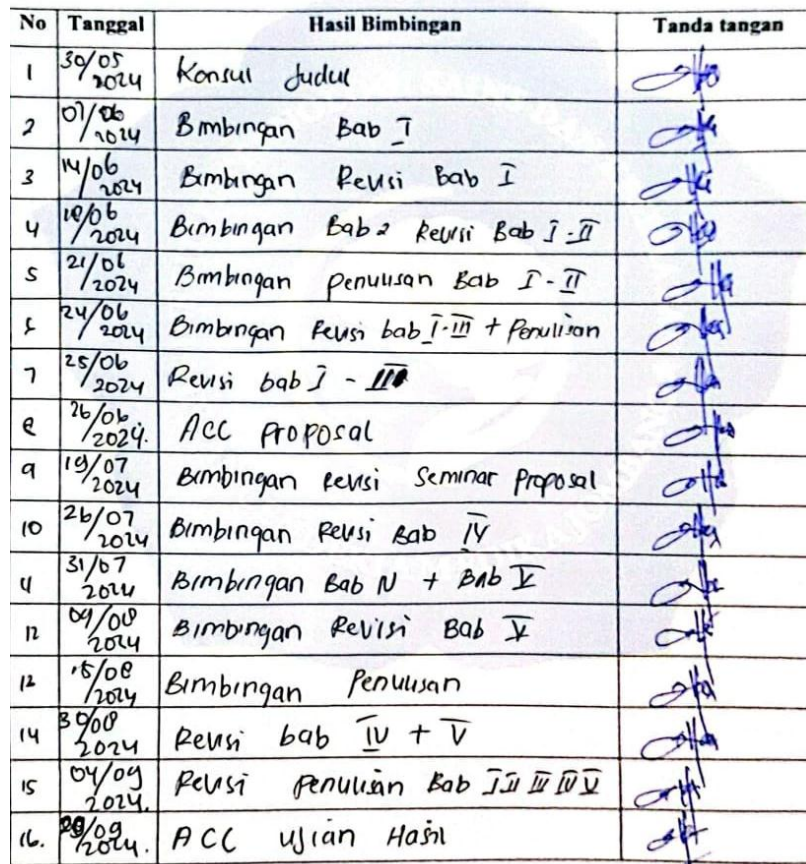 No Tanggal Hasil Bimbingan Tanda tangan
1 30/05 2024 Konsul Judul
2 07/06 2024 Bimbingan Bab I
3 14/06 2024 Bimbingan Revisi Bab I
4 /06 2024 Bimbingan Bab 2 Revisi Bab I - II
5 21/06 2024 Bimbingan penulisan Bab I - II
24/06 2024 Bimbingan Revisi bab I - III + Penulisan
7 25/06 2024 Revisi bab I - III
8 26/06 2024. ACC proposal
9 19/07 2024 Bimbingan revisi Seminar Proposal
10 26/07 2024 Bimbingan Revisi Bab IV
11 31/07 2024 Bimbingan Bab IV + Bab V
12 09/08 2024 Bimbingan Revisi Bab V
15/08 2024 Bimbingan Penulisan
14 30/08 2024 Revisi bab IV + V
15 04/09 2024. Revisi penulisan Bab I II III IV V
16. /09 2024. ACC ujian Hasil